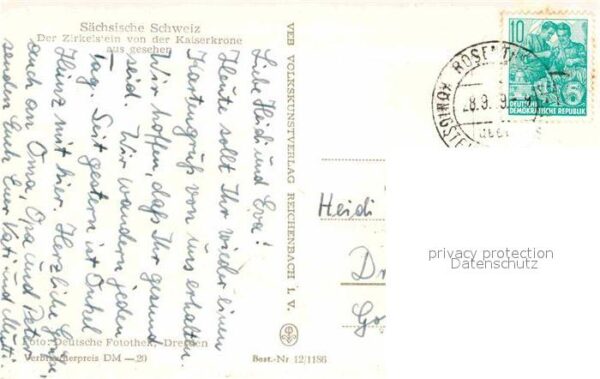 Sächsische Schweiz
Der Zirkelstein von der Kaiserkrone
aus gesehen
Liebe Heidi und Eva!
Heute sollt Ihr wieder einen
Kartengruß von uns erhalten.
Wir hoffen, daß Ihr gesund
seid. Wir wandern jeden
Tag. Seit gestern ist Onkel
Heinz mit hier. Herzliche Grüße,
auch an Oma, Opa und Peter,
senden Euch Eure Vati und Mutti.
Foto: Deutsche Fotothek, Dresden
Verbraucherpreis DM —20
VEB VOLKSKUNSTVERLAG REICHENBACH I. V.
Best.-Nr 12/1186
10
DEUTSCHE
DEMOKRATISCHE REPUBLIK
ROSENTH
KÖNIGSTE
28.9.
Heidi
Dr
Go
privacy protection
Datenschutz